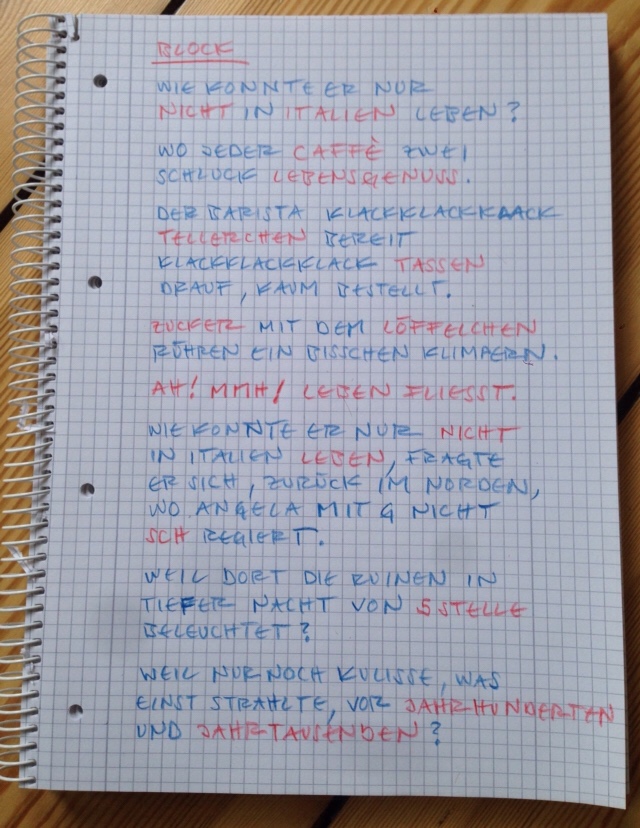 BLOCK
WIE KONNTE ER NUR
NICHT IN ITALIEN LEBEN?
WO JEDER CAFFÈ ZWEI
SCHLUCK LEBENSGENUSS.
DER BARISTA KLACKKLACKKLACK
TELLERCHEN BEREIT
KLACKKLACKKLACK TASSEN
DRAUF, KAUM BESTELLT.
ZUCKER MIT DEM LÖFFELCHEN
RÜHREN EIN BISSCHEN KLIMPERN.
AH! MMH! LEBEN FLIESST.
WIE KONNTE ER NUR NICHT
IN ITALIEN LEBEN, FRAGTE
ER SICH, ZURÜCK IM NORDEN,
WO ANGELA MIT G NICHT
SCH REGIERT.
WEIL DORT DIE RUINEN IN
TIEFER NACHT VON 5 STELLE
BELEUCHTET?
WEIL NUR NOCH KULISSE, WAS
EINST STRAHLTE, VOR JAHRHUNDERTEN
UND JAHRTAUSENDEN?